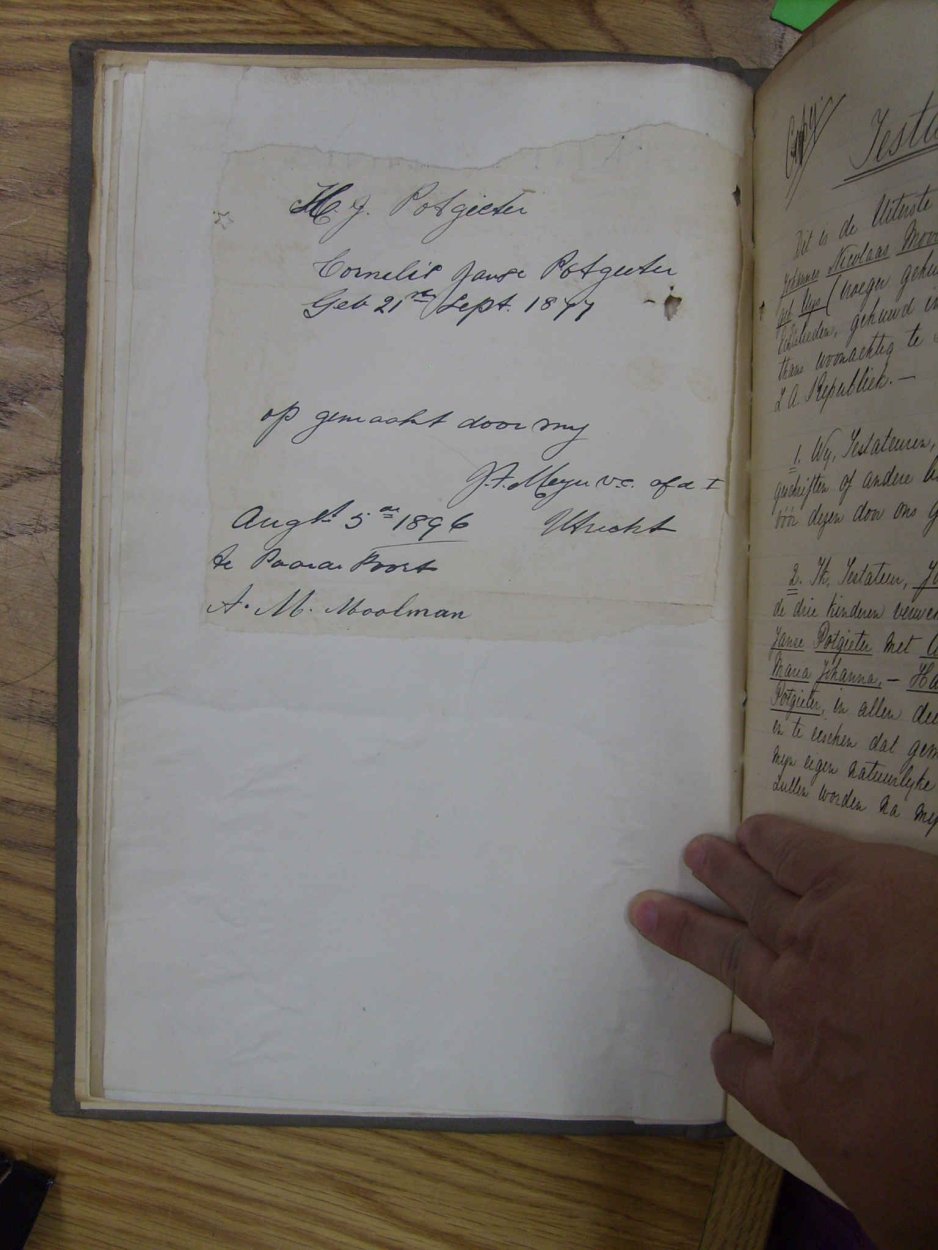 H. J. Potgieter
Cornelis Janse Potgieter
Geb 21 Sept. 1877
op gemaakt door my
J. F. Meyer v.c. of d I
Augst 5 de 1896 Utrecht
te Paarde Poort
A. M. Moolman
Copy
Testa
Dit is de Uiterste
Johannes Nicolaas Moo
geb Uys (vroeger gehu
Echtelieden, gehuwd in
thans woonachtig te
Z. A. Republiek. —
1. Wy, Testateuren,
geschriften of andere
vóór dezen door ons g
2. Ik, Testateur, Jo
de drie kinderen verwe
Janse Potgieter met
Maria Johanna, — Ha
Potgieter, in allen dee
en te eischen dat gem
myn eigen natuurlyke
zullen worden na my